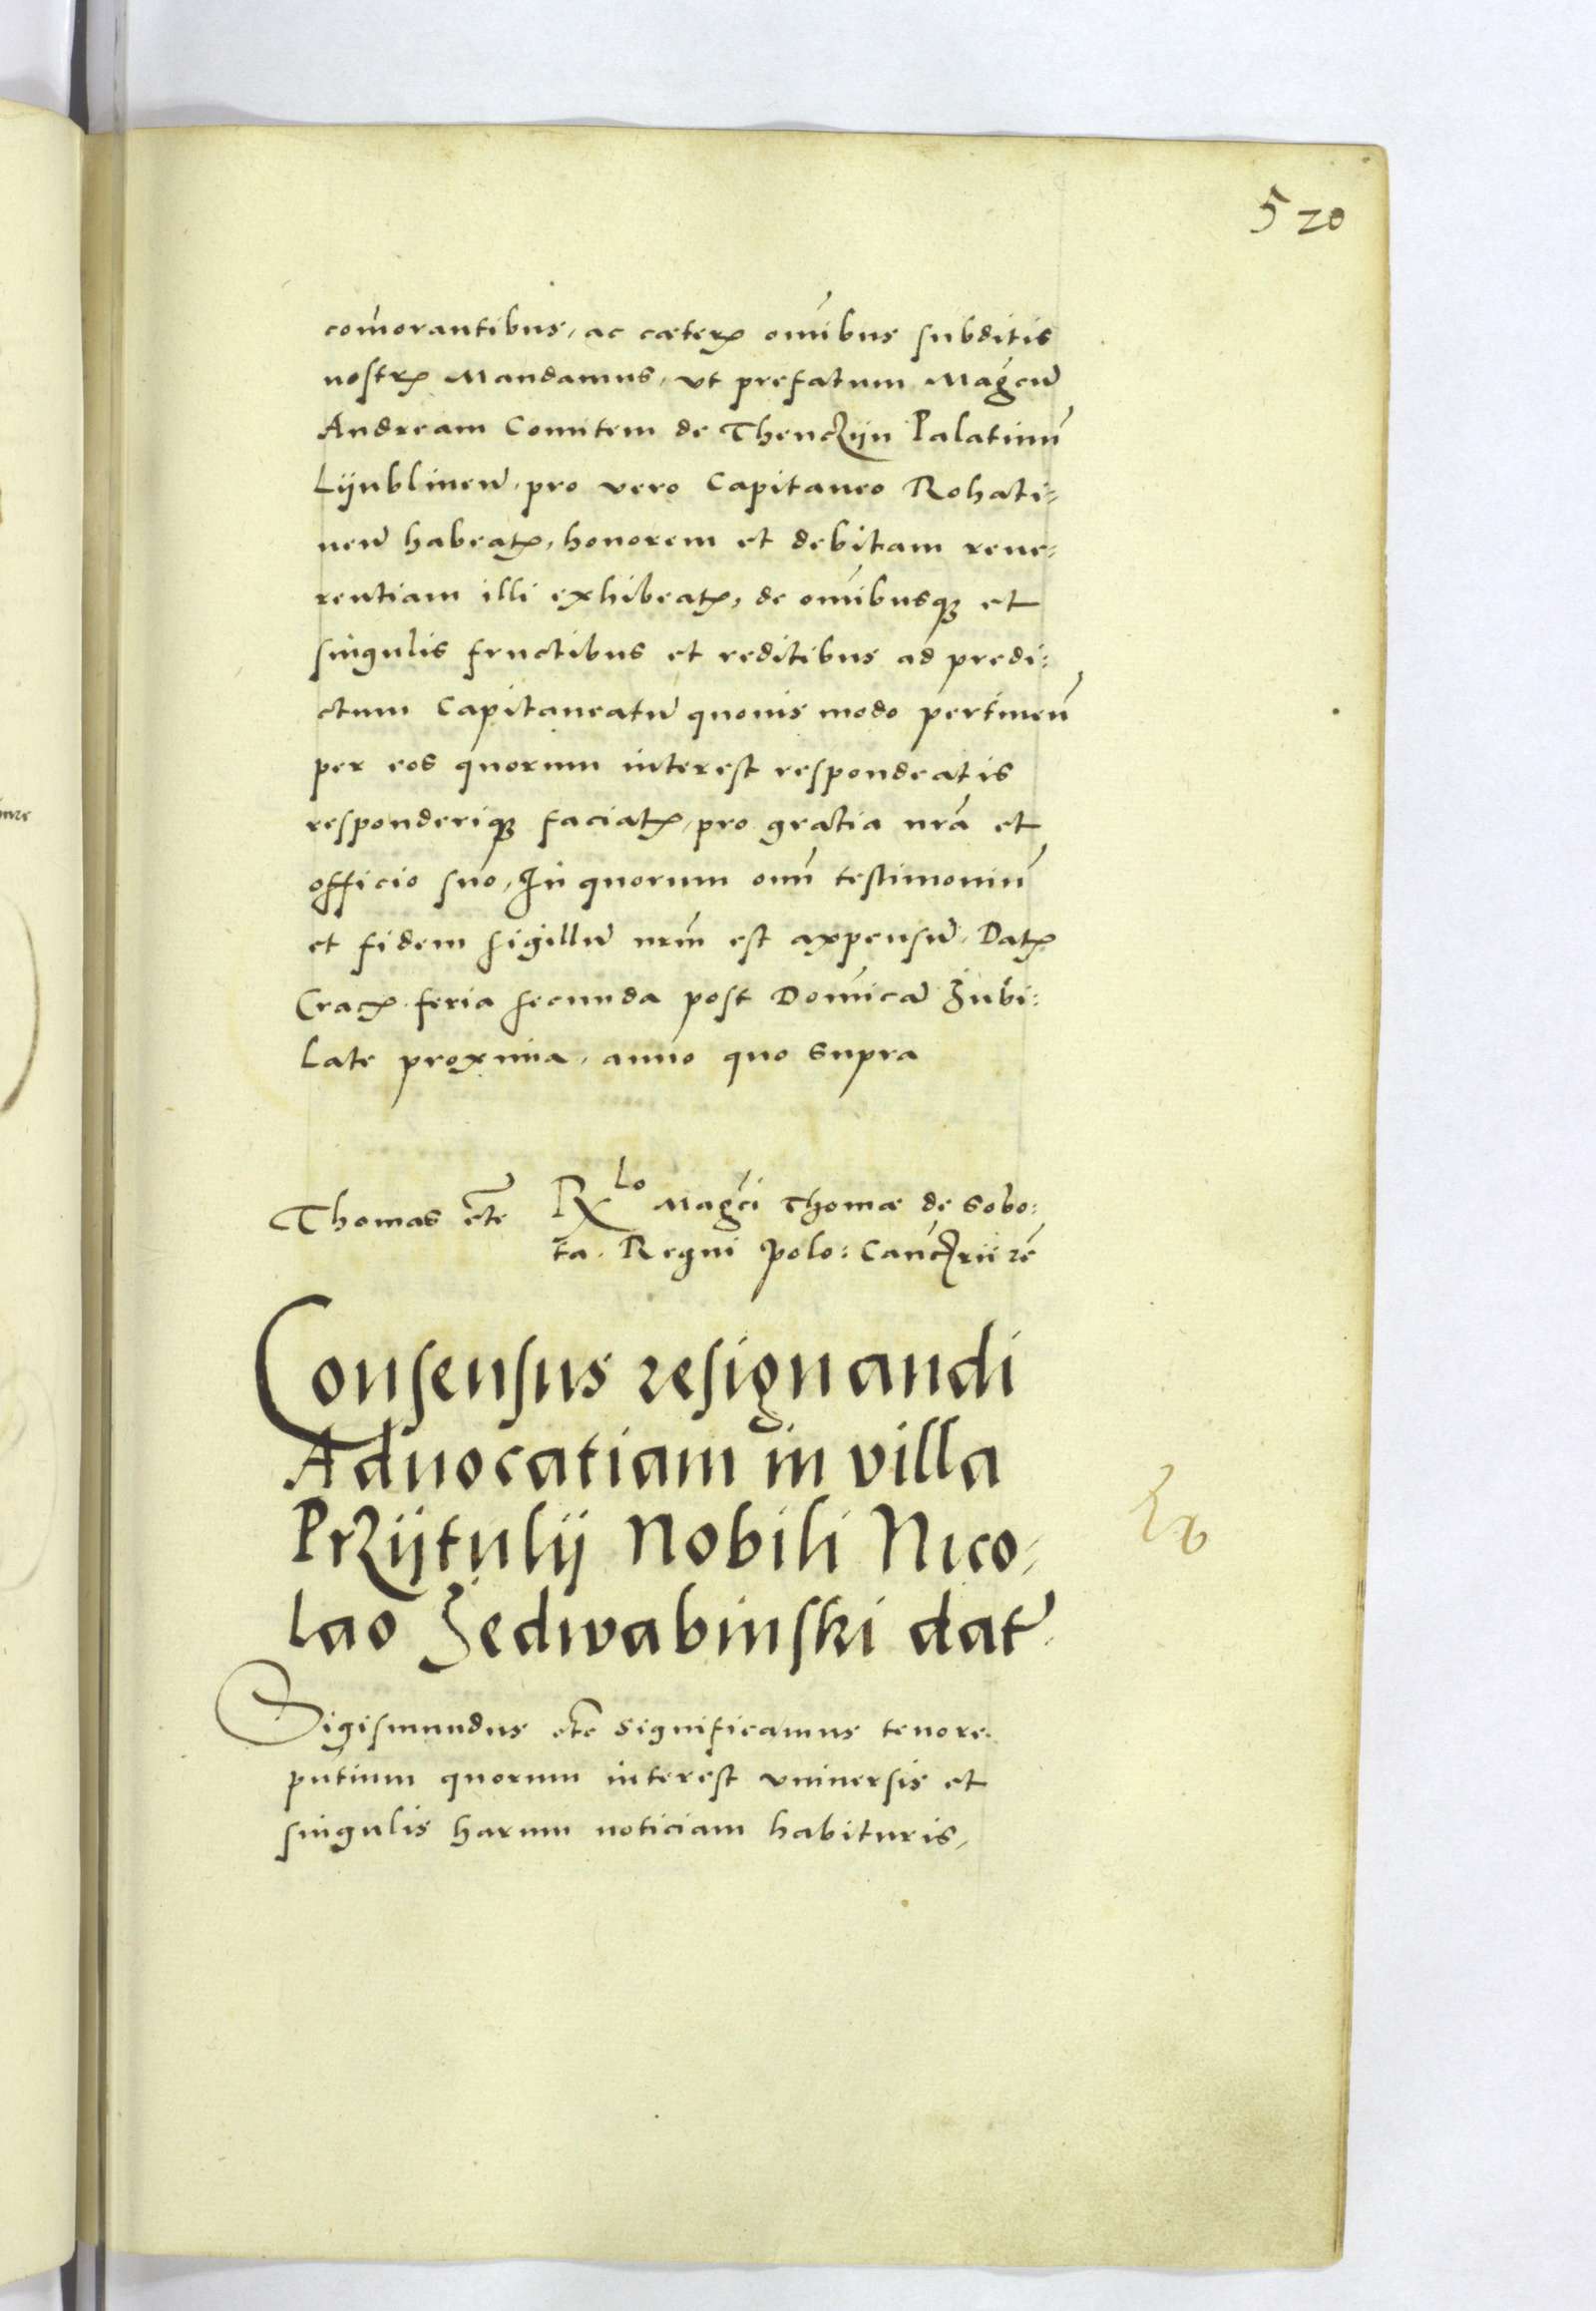 520
com̃orantibus, ac cæterꝭ om̃ibus subditis
nostrꝭ Mandamus, vt prefatum Magcũ
Andream Comitem de Thenczÿn Palatinũ
Lÿublineñ. pro vero Capitaneo Rohati=
neñ habeatꝭ, honorem et debitam reue=
rentiam illi exhibeatꝭ, de om̃ibusqꝫ et
singulis fructibus et reditibus ad predi=
ctum Capitaneatũ quouis modo pertineñ
per eos quorum interest respondeatis
responderiqꝫ faciatꝭ, pro gratia nrã et
officio suo, In quorum om̃ testimoniũ
et fidem sigillũ nrm̃ est axpensũ. Datꝭ
Cracꝭ. feria secunda post Dominicã Jubi=
late proxima, anno quo supra
Thomas etc̃ Rlo Magc̃i Thomæ de Sobo=
ta. Regni Polo: Canc̃rii re͂
Consensus resignandi
Aduocatiam in villa
Przÿtulÿ Nobili Nico=
lao Jedwabinski dat̃.
Sigismundus etc̃ Significamus tenore.
pñtium quorum interest vniuersis et
singulis harum noticiam habituris,